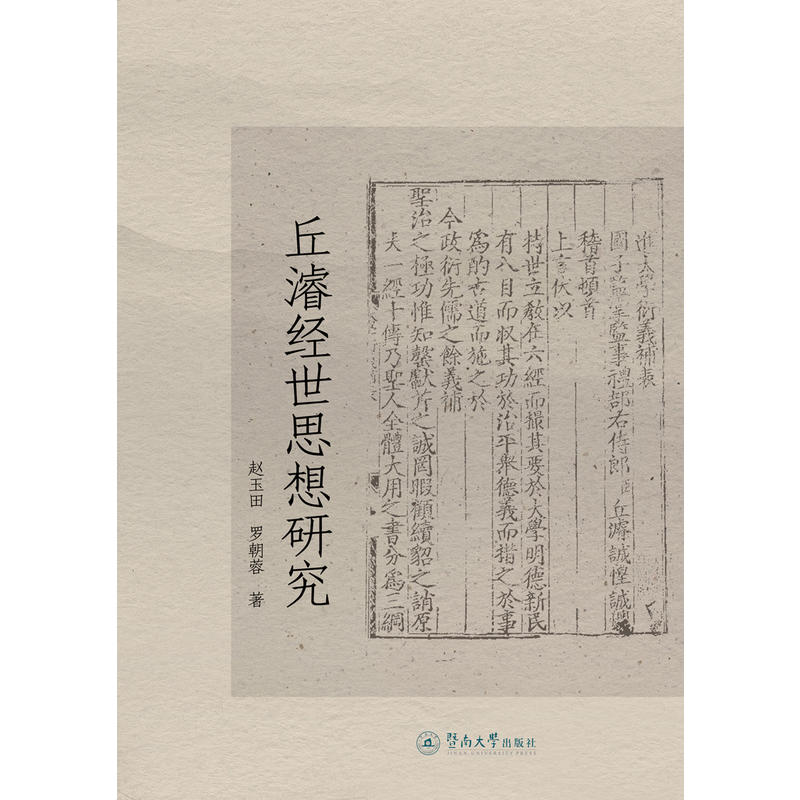 丘濬经世思想研究
赵玉田 罗朝蓉 著
進大學衍義補表
國子監掌監事禮部右侍郎臣丘濬誠惶誠
稽首頓首
上言伏以
持世立教在六經而撮其要於大學明德新民
有八目而収其功於治平舉德義而措之於事
為酌古道而施之於
今政衍先儒之餘義補
聖治之極功惟知罄獻芹之誠罔暇顧續貂之誚原
夫一經十傳乃聖人全體大用之書分為三綱
暨南大學出版社
JINAN UNIVERSITY PRESS